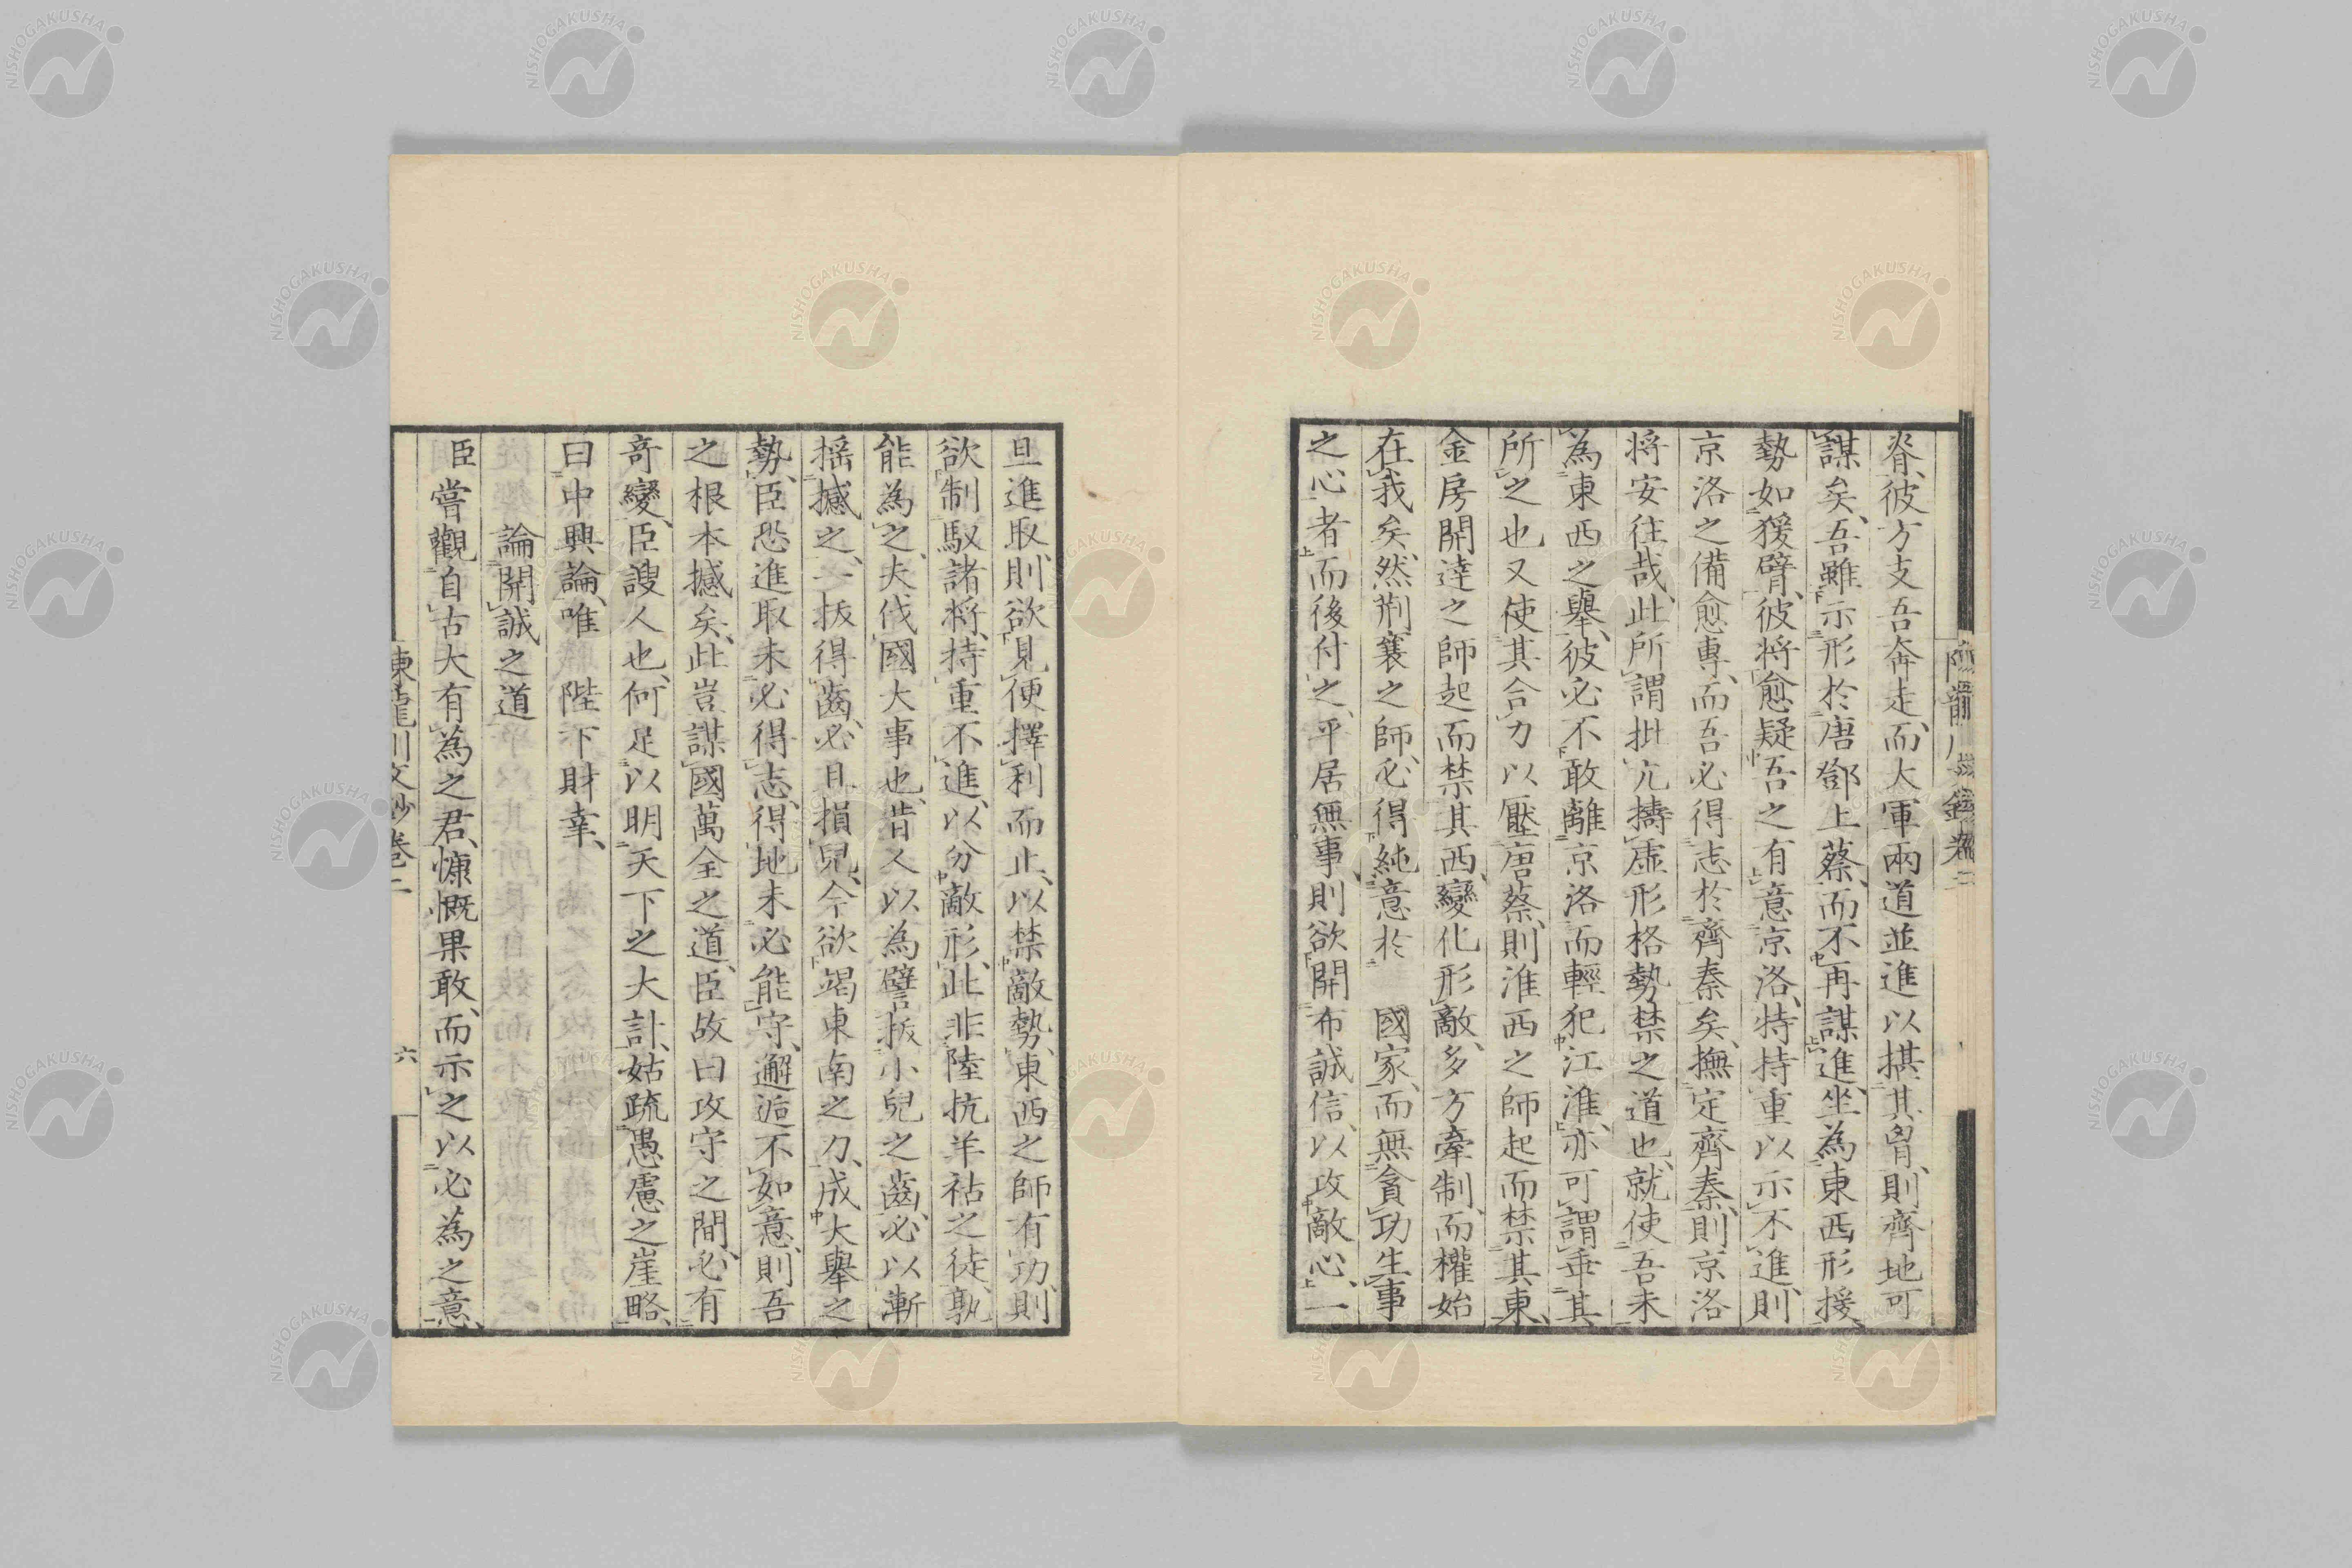 脊、彼方支吾奔走、而大軍兩道並進以搘其胷、則齊地可
謀矣、吾雖示形於唐鄧上蔡、而不再謀進、坐為東西形援、
勢如猨臂、彼將愈疑吾之有意京洛、特持重以示不進、則
京洛之備愈專、而吾必得志於齊秦矣、撫定齊秦、則京洛
将安往哉、此所謂批亢擣虛形格勢禁之道也、就使吾未
為東西之舉、彼必不敢離京洛而輕犯江淮、亦可謂乖其
所之也又使其合力以壓唐蔡、則淮西之師起而禁其東、
金房開達之師起而禁其西、變化形敵、多方牽制、而權始
在我矣、然荊襄之師、必得純意於 國家、而無貪功生事
之心者而後付之、平居無事、則欲開布誠信、以攻敵心、一
旦進取、則欲見便擇利而止、以禁敵勢、東西之師有功、則
欲制馭諸将、持重不進、以分敵形、此非陸抗羊祜之徒、孰
能為之、夫伐國大事也、昔人以為譬拔小兒之齒、必以漸
揺撼之、一拔得齒、必且損兒、今欲竭東南之力、成大舉之
勢、臣恐進取未必得志、得地未必能守、邂逅不如意、則吾
之根本撼矣、此豈謀國萬全之道、臣故曰攻守之間、必有
奇變、臣謏人也、何足以明天下之大計、姑疏愚慮之崖略、
曰中興論、唯 陛下財幸、
論開誠之道
臣嘗觀自古大有為之君、慷慨果敢、而示之以必為之意、
陳龍川文鈔卷二
六